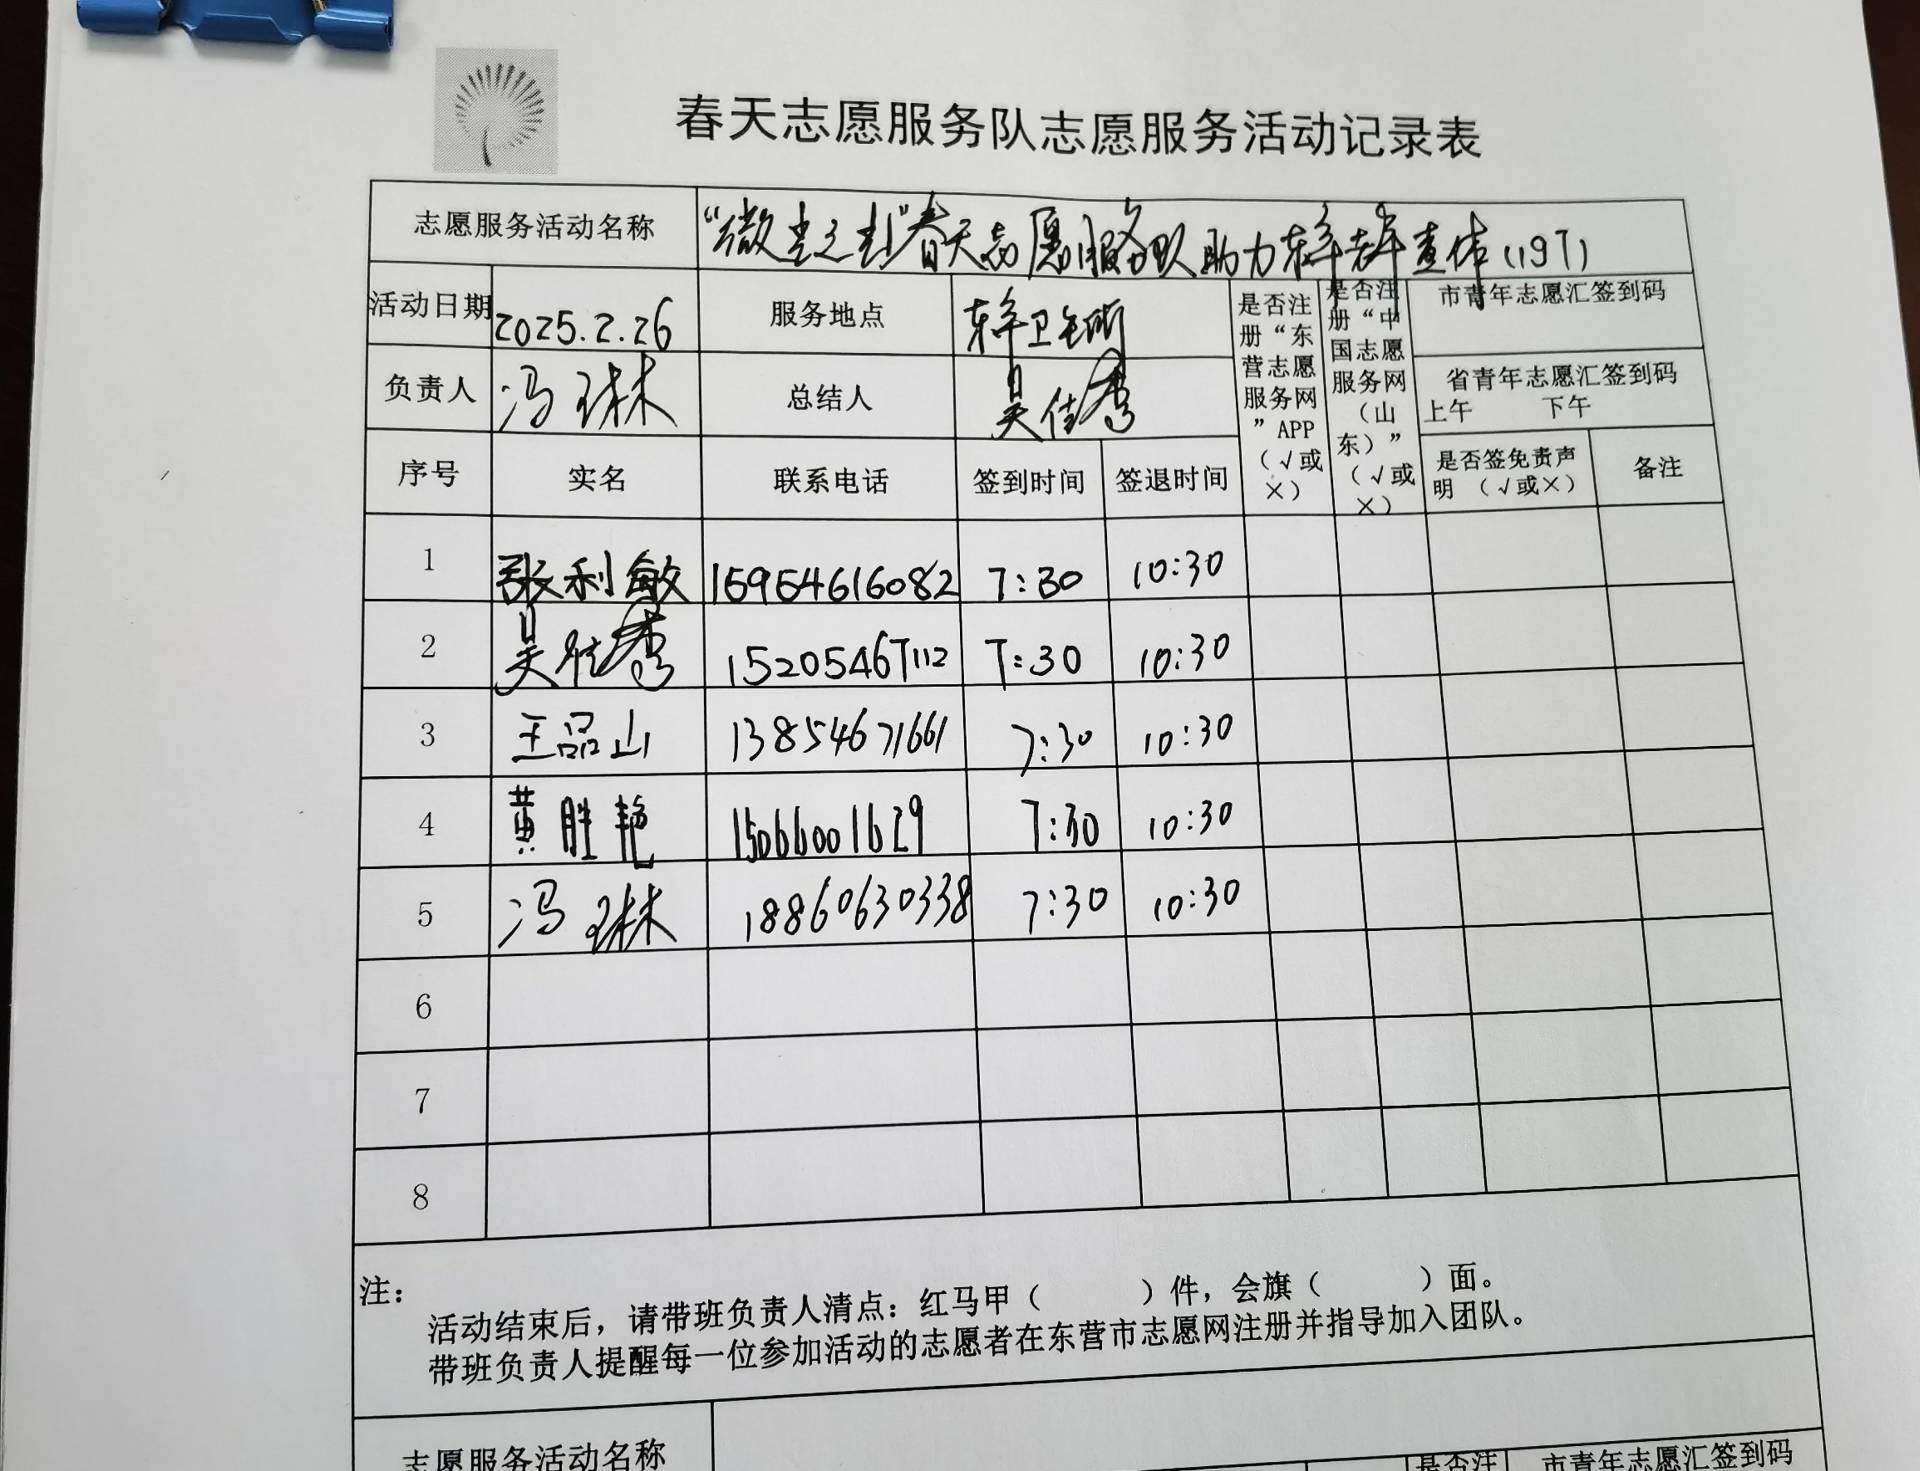 春天志愿服务队志愿服务活动记录表
志愿服务活动名称 “微尘之”春天志愿服务队助力老年体(197)
活动日期 2025.2.26 服务地点 是否注册“东营志愿服务网”APP（√或×） 是否注册“中国志愿服务网（山东）”（√或×） 市青年志愿汇签到码
负责人 冯琳 总结人 吴佳秀 省青年志愿汇签到码
上午 下午
序号 实名 联系电话 签到时间 签退时间 是否签免责声明（√或×） 备注
1 张利敏 15954616082 7:30 10:30
2 吴佳秀 15205467112 7:30 10:30
3 王品山 13854671661 7:30 10:30
4 黄胜艳 15066001629 7:30 10:30
5 冯琳 18860630338 7:30 10:30
6
7
8
注：
活动结束后，请带班负责人清点：红马甲（ ）件，会旗（ ）面。
带班负责人提醒每一位参加活动的志愿者在东营市志愿网注册并指导加入团队。
志愿服务活动名称
是否注 市青年志愿汇签到码